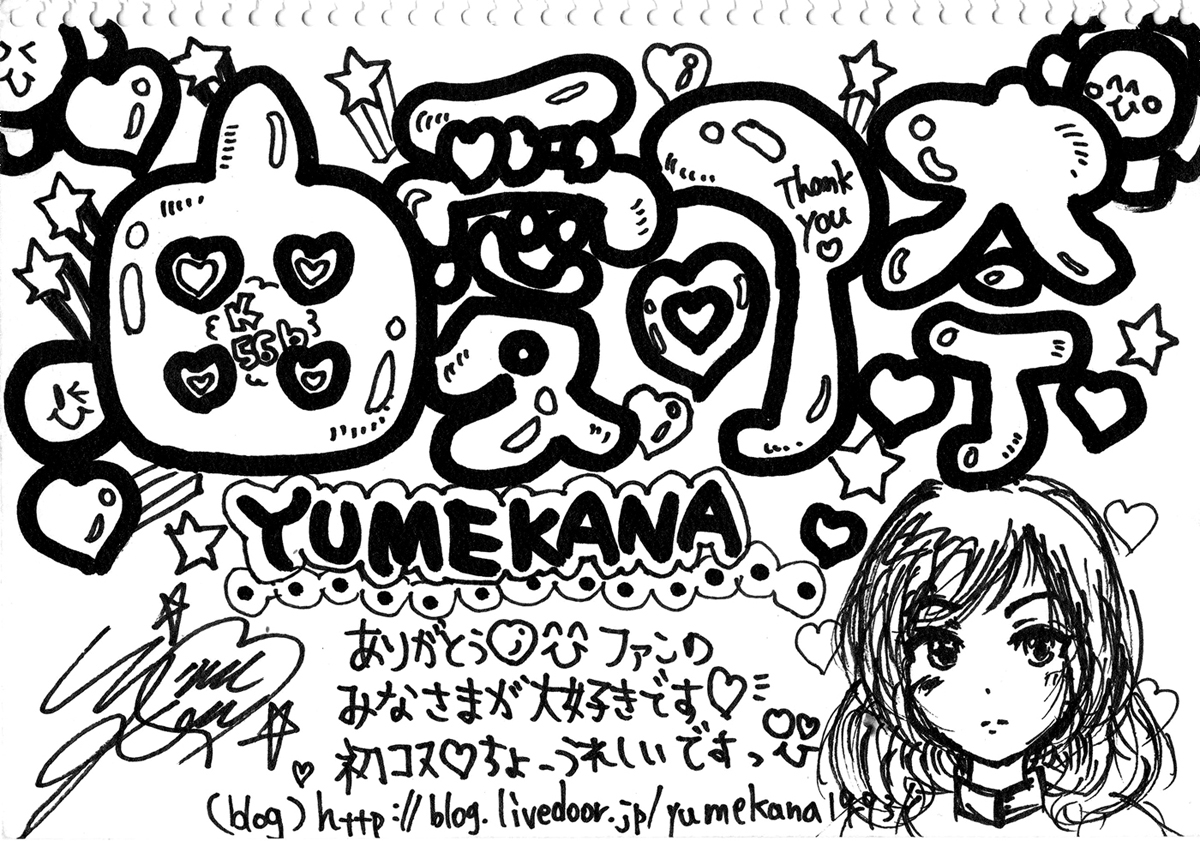 由愛可奈
Thank
you
K
556
YUMEKANA
ありがとう♡ ファンの
みなさまが大好きです♡
初コス♡ちょーうれしいですっ
(blog) http://blog.livedoor.jp/yumekana